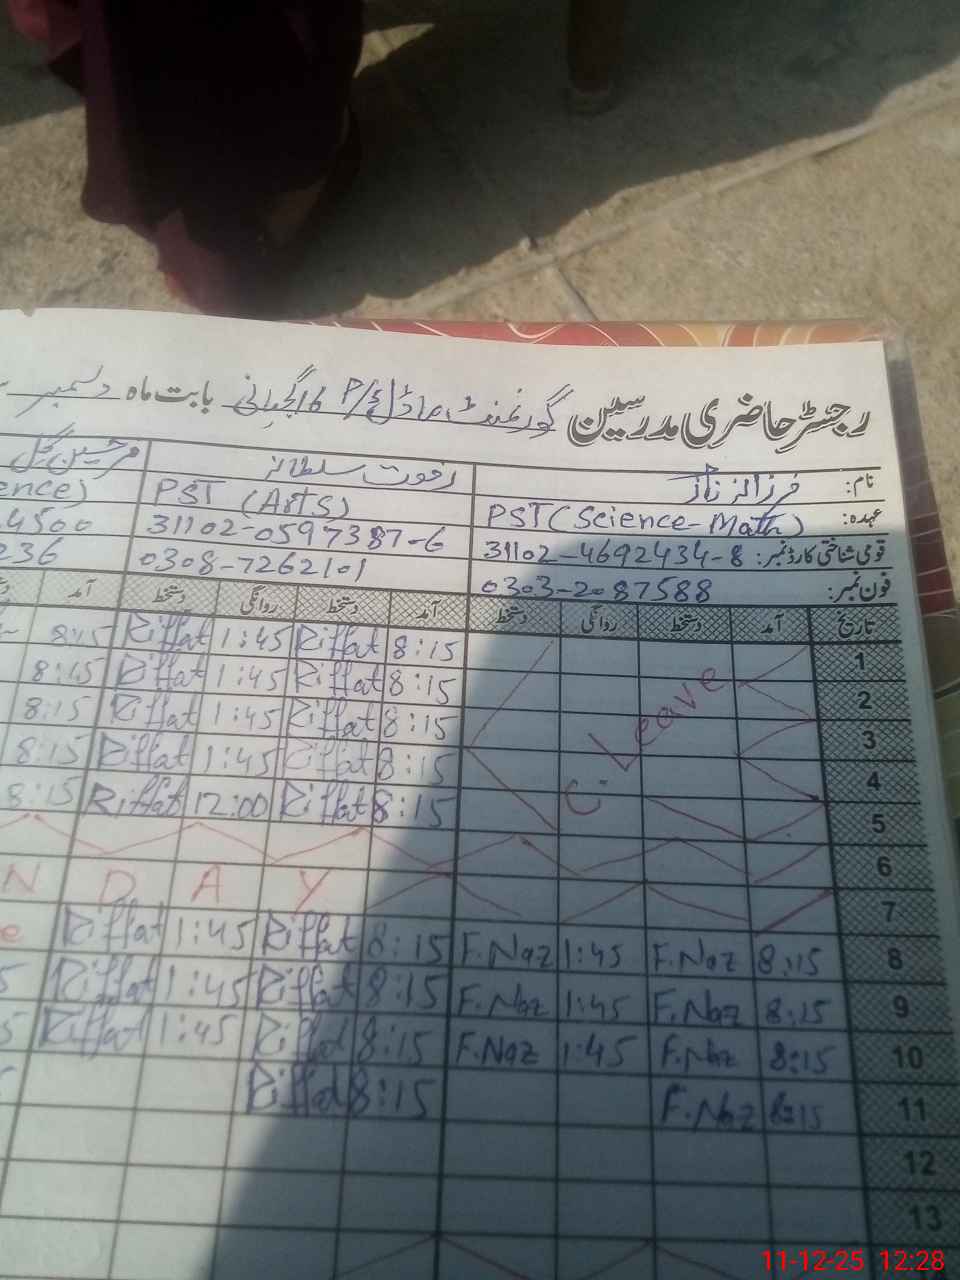 رجسٹر حاضری مدرسین گورنمنٹ ماڈل P/S بابت ماہ دسمبر
نام: فرزانہ ناز رفعت سلطانہ
عہدہ: PST (Science-Math) PST (Arts) ence)
قومی شناختی کارڈ نمبر: 31102-4692434-8 31102-0597387-6 4500
فون نمبر: 0303-2087588 0308-7262101 236
تاریخ آمد دستخط روانگی دستخط آمد دستخط روانگی دستخط آمد
1 8:15 Riffat 1:45 Riffat 8:15
2 8:15 Riffat 1:45 Riffat 8:15
3 8:15 Riffat 1:45 Riffat 8:15
4 8:15 Riffat 1:45 Riffat 8:15
5 8:15 Riffat 12:00 Riffat 8:15
C. Leave
6
7 N D A Y
8 8:15 F.Naz 1:45 F.Naz 8:15 Riffat 1:45 Riffat e
9 8:15 F.Naz 1:45 F.Naz 8:15 Riffat 1:45 Riffat 5
10 8:15 F.Naz 1:45 F.Naz 8:15 Riffat 1:45 Riffat 5
11 8:15 F.Naz 8:15 Riffat
12
13
11-12-25 12:28